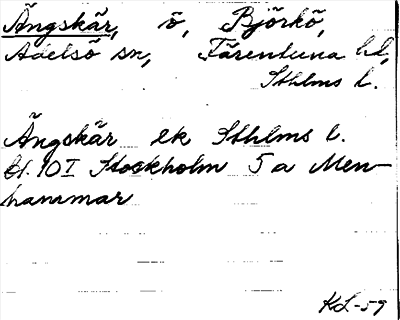 Ängskär, ö, Björkö,
Adelsö sn, Färentuna hd,
Sthlms l.
Ängskär ek Sthlms l.
bl. 10I Stockholm 5 a Men-
hammar
KL-59